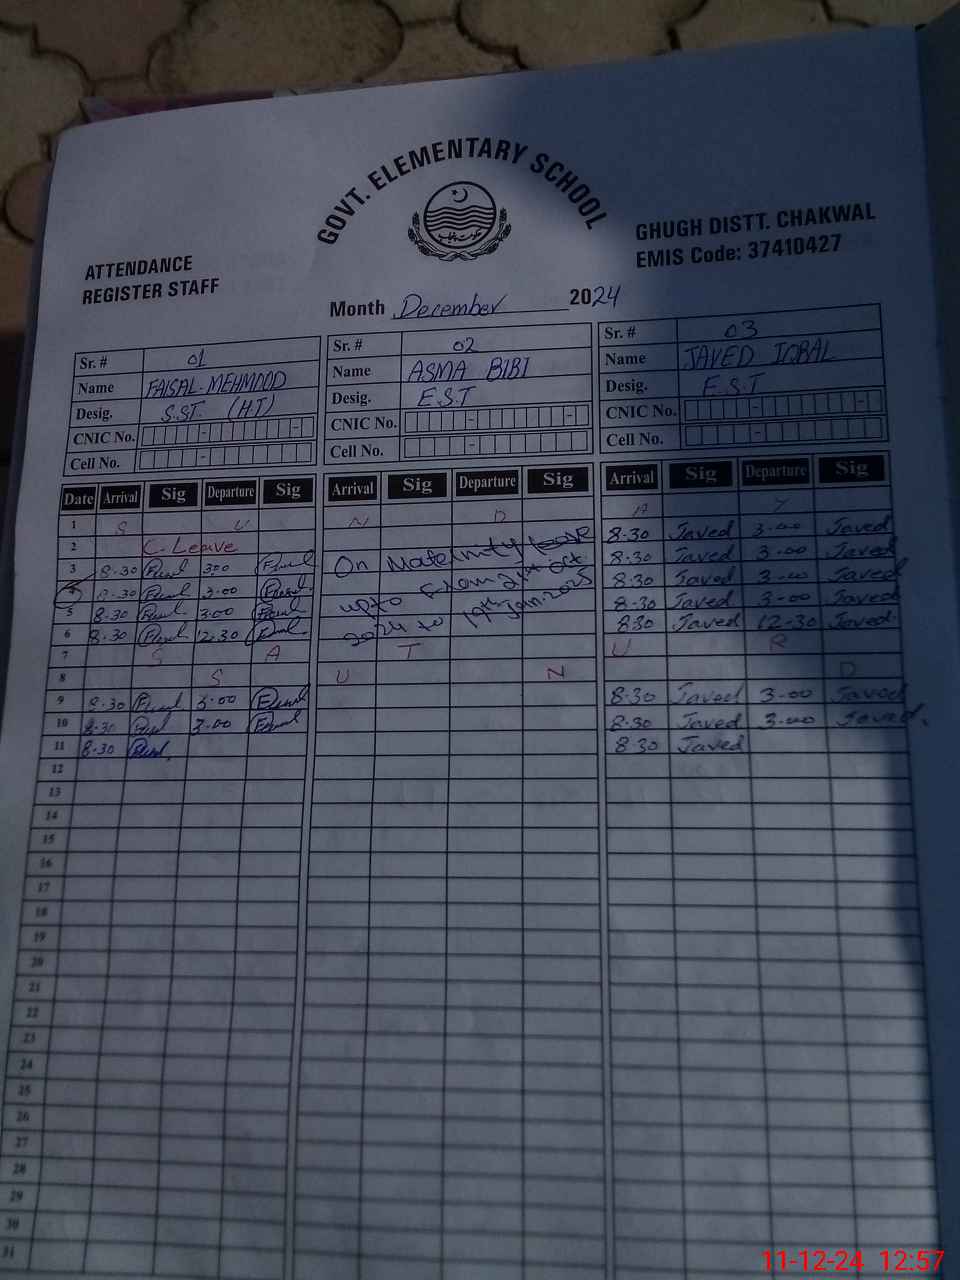 GOVT. ELEMENTARY SCHOOL
حکومت پنجاب
ATTENDANCE
REGISTER STAFF
GHUGH DISTT. CHAKWAL
EMIS Code: 37410427
Month December 2024
Sr. # 01 Sr. # 02 Sr. # 03
Name FAISAL MEHMOOD Name ASMA BIBI Name JAVED IQBAL
Desig. S.ST. (H.T) Desig. E.S.T Desig. E.S.T
CNIC No. - - CNIC No. - - CNIC No. - -
Cell No. - Cell No. - Cell No. -
Date Arrival Sig Departure Sig Arrival Sig Departure Sig Arrival Sig Departure Sig
1 S U N D A Y
2 C. Leave 8.30 Javed 3.00 Javed
3 8.30 3.00 On Maternity leave 8.30 Javed 3.00 Javed
4 8.30 3.00 upto From 21st Oct 8.30 Javed 3.00 Javed
5 8.30 3.00 2024 to 19th Jan.2025 8.30 Javed 3.00 Javed
6 8.30 12.30 8.30 Javed 12.30 Javed
7 S A T U R D
8 S U N
9 8.30 3.00 8.30 Javed 3.00 Javed
10 8.30 3.00 8.30 Javed 3.00 Javed
11 8.30 8.30 Javed
12
13
14
15
16
17
18
19
20
21
22
23
24
25
26
27
28
29
30
31
11-12-24 12:57